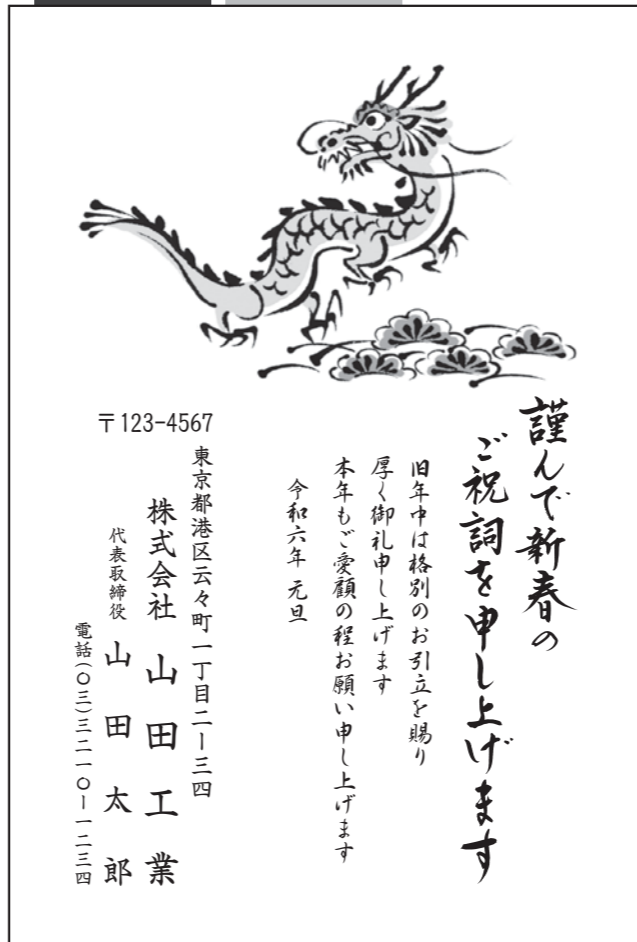 謹んで新春の
ご祝詞を申し上げます
旧年中は格別のお引立を賜り
厚く御礼申し上げます
本年もご愛顧の程お願い申し上げます
令和六年 元旦
〒123-4567
東京都港区云々町一丁目二ー三四
株式会社 山田工業
代表取締役 山田太郎
電話(〇三)三二一〇ー一二三四